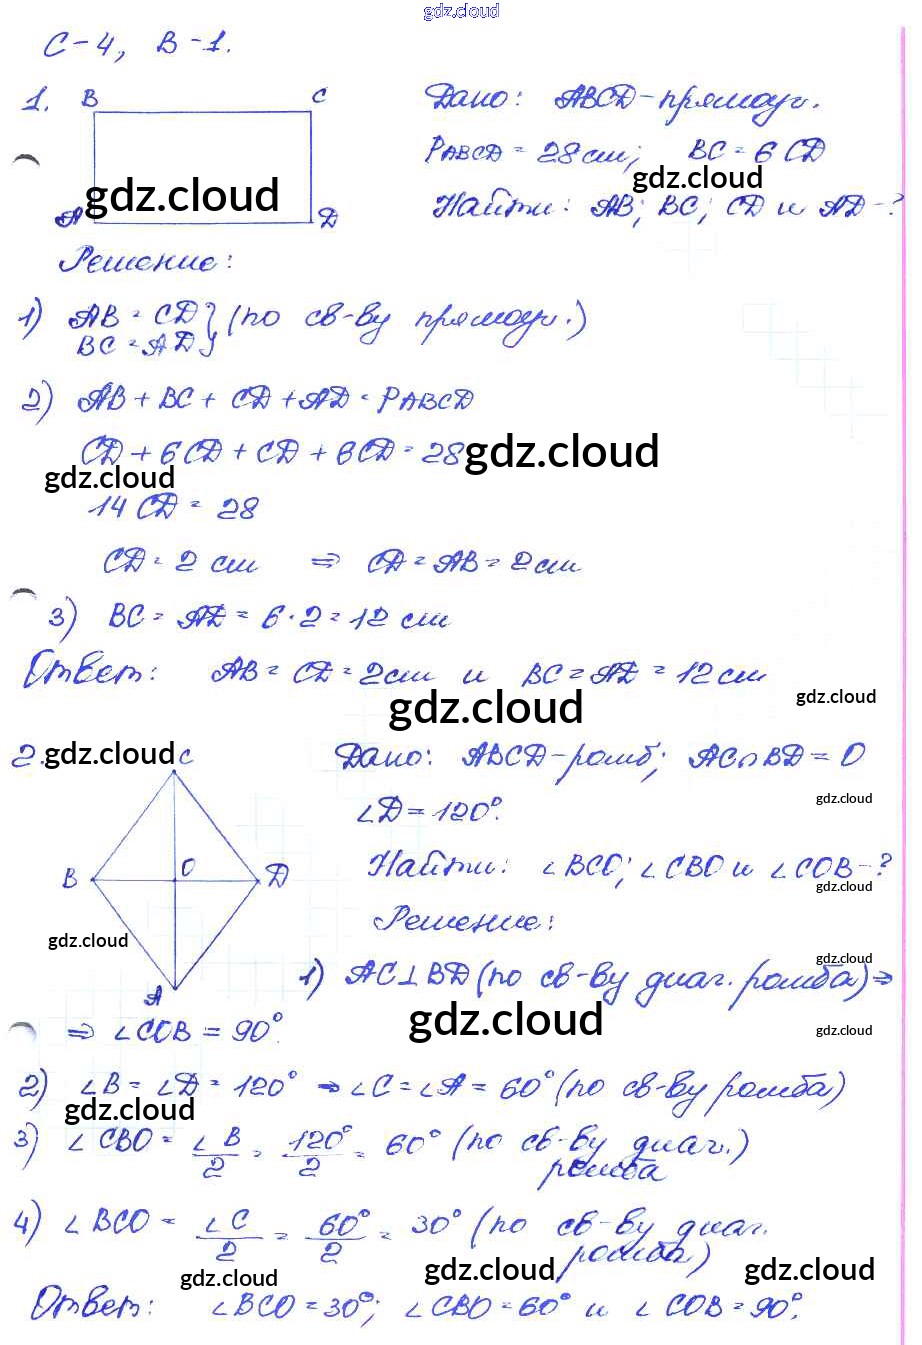 gdz.cloud
С-4, В-1.
1. B C
A D
gdz.cloud
Дано: ABCD-прямоуг.
PABCD = 28 см; BC = 6 CD
gdz.cloud
Найти: AB; BC; CD и AD-?
Решение:
1) AB = CD } (по св-ву прямоуг.)
BC = AD
2) AB + BC + CD + AD = PABCD
CD + 6CD + CD + 6CD = 28
gdz.cloud
gdz.cloud
14 CD = 28
CD = 2 см ⇒ CD = AB = 2 см
3) BC = AD = 6 · 2 = 12 см
Ответ: AB = CD = 2 см и BC = AD = 12 см
gdz.cloud
gdz.cloud
2. gdz.cloud
C
B O D
A
gdz.cloud
Дано: ABCD-ромб; AC∩BD = O
∠D = 120°.
gdz.cloud
Найти: ∠BCO; ∠CBO и ∠COB-?
gdz.cloud
Решение:
1) AC⊥BD (по св-ву диаг. ромба) ⇒
gdz.cloud
⇒ ∠COB = 90°.
gdz.cloud
gdz.cloud
2) ∠B = ∠D = 120° ⇒ ∠C = ∠A = 60° (по св-ву ромба)
gdz.cloud
3) ∠CBO = ∠B/2 = 120°/2 = 60° (по св-ву диаг.)
ромба
4) ∠BCO = ∠C/2 = 60°/2 = 30° (по св-ву диаг.
ромба)
gdz.cloud
gdz.cloud
gdz.cloud
Ответ: ∠BCO = 30°; ∠CBO = 60° и ∠COB = 90°.